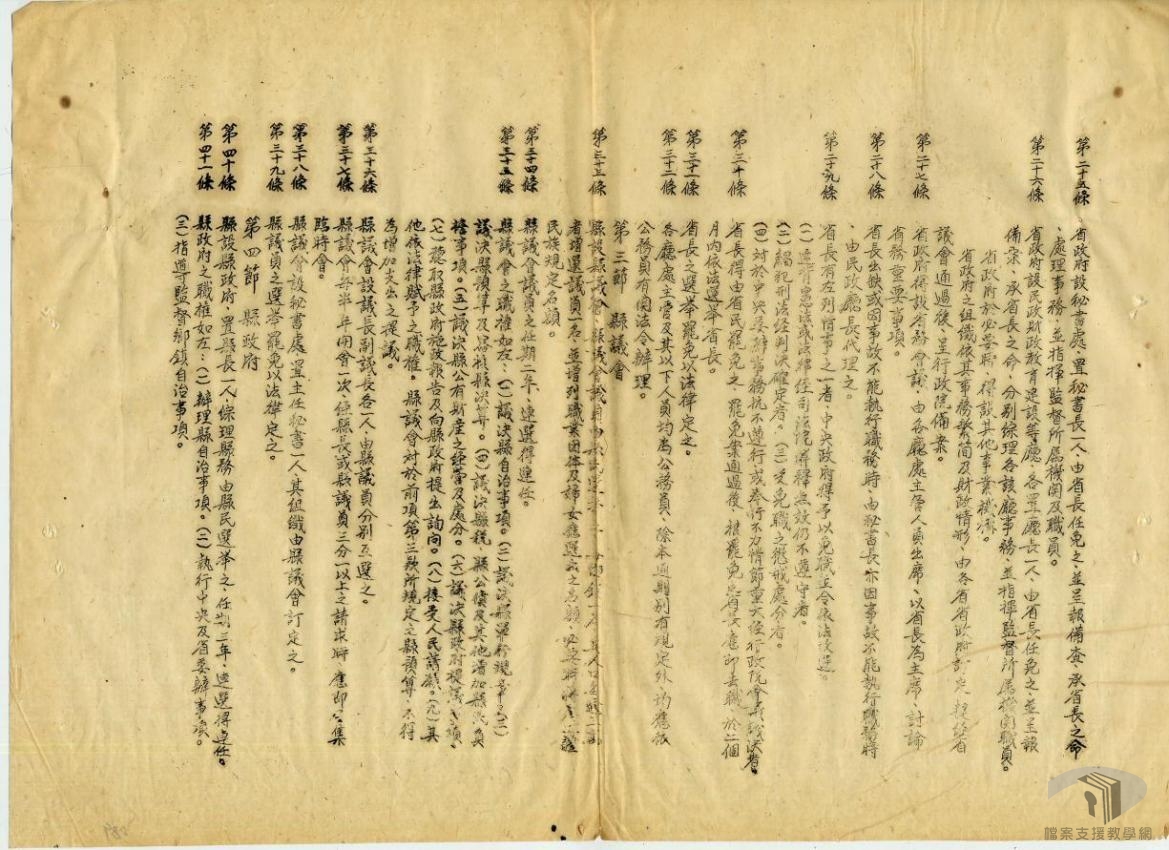 第二十五條 省政府設秘書處、置秘書長一人、由省長任免之、並呈報備查、承省長之命
、處理事務、並指揮監督所屬機関及職員。
第二十六條 省政府設民政財政教育建設等廳、各置廳長一人、由省長任免之、並呈報
備案、承省長之命、分別綜理各該廳事務、並指揮監督所屬機関職員。
省政府於必要時、得設其他事業機構。
省政府之組織依其事務繁簡及財政情形、由各省省政府訂定、提經省
議會通過後、呈行政院備案。
第二十七條 省政府得設省務會議、由各廳處主管人員出席、以省長為主席、討論
省務重要事項。
第二十八條 省長出缺或因事故不能執行職務時、由秘書長亦因事故不能執行職務時
、由民政廳長代理之。
第二十九條 省長有左列情事之一者、中央政府得予以免職並令依法改選。
(一)違背憲法或法律經司法院解釋無效仍不遵守者。
(二)觸犯刑法經判決確定者。(三)受免職之懲戒處分者。
(四)對於中央委辦事務抗不遵行或奉行不力情節重大經行政院會議議決者。
第三十條 省長得由省民罷免之、罷免案通過後、被罷免省長應即去職、於二個
月內依法選舉省長。
第三十一條 省長之選舉罷免以法律定之。
第三十二條 各廳處主管及其以下人員均為公務員、除本通則別有規定外、均應依
公務員有関法令辦理。
第三節 縣議會
第三十三條 縣設縣議會、縣議會議員由
者增選議員一名、並增列職業團体及婦女應選出之名額、
民族規定名額。
第三十四條 縣議會議員之任期二年、連選得連任。
第三十五條 縣議會之職權如左:(一)議決縣自治事項。(二)議決縣單行規章。(三)
議決縣預算及審核縣決算。(四)議決縣稅、縣公債及其他增加縣民負
擔事項。(五)議決縣公有財產之經營及處分。(六)議決縣政府提議之事項、
(七)聽取縣政府施政報告及向縣政府提出詢问。(八)接受人民請願。(九)其
他依法律賦予之職權。縣議會対於前項第三款所規定之縣預算、不得
為增加支出之提議。
第三十六條 縣議會設議長副議長各一人、由縣議員分別互選之。
第三十七條 縣議會每半年開會一次、經縣長或縣議員三分一以上之請求時、應即召集
臨時會。
第三十八條 縣議會設秘書處、置主任秘書一人、其組織由縣議會訂定之。
第三十九條 縣議員之選舉罷免以法律定之。
第四節 縣政府
第四十條 縣設縣政府、置縣長一人、綜理縣務、由縣民選舉之、任期三年、連選得連任。
第四十一條 縣政府之職權如左:(一)辦理縣自治事項。(二)執行中央及省委辦事項。
(三)指導監督鄉鎮自治事項。
檔案支援教學網